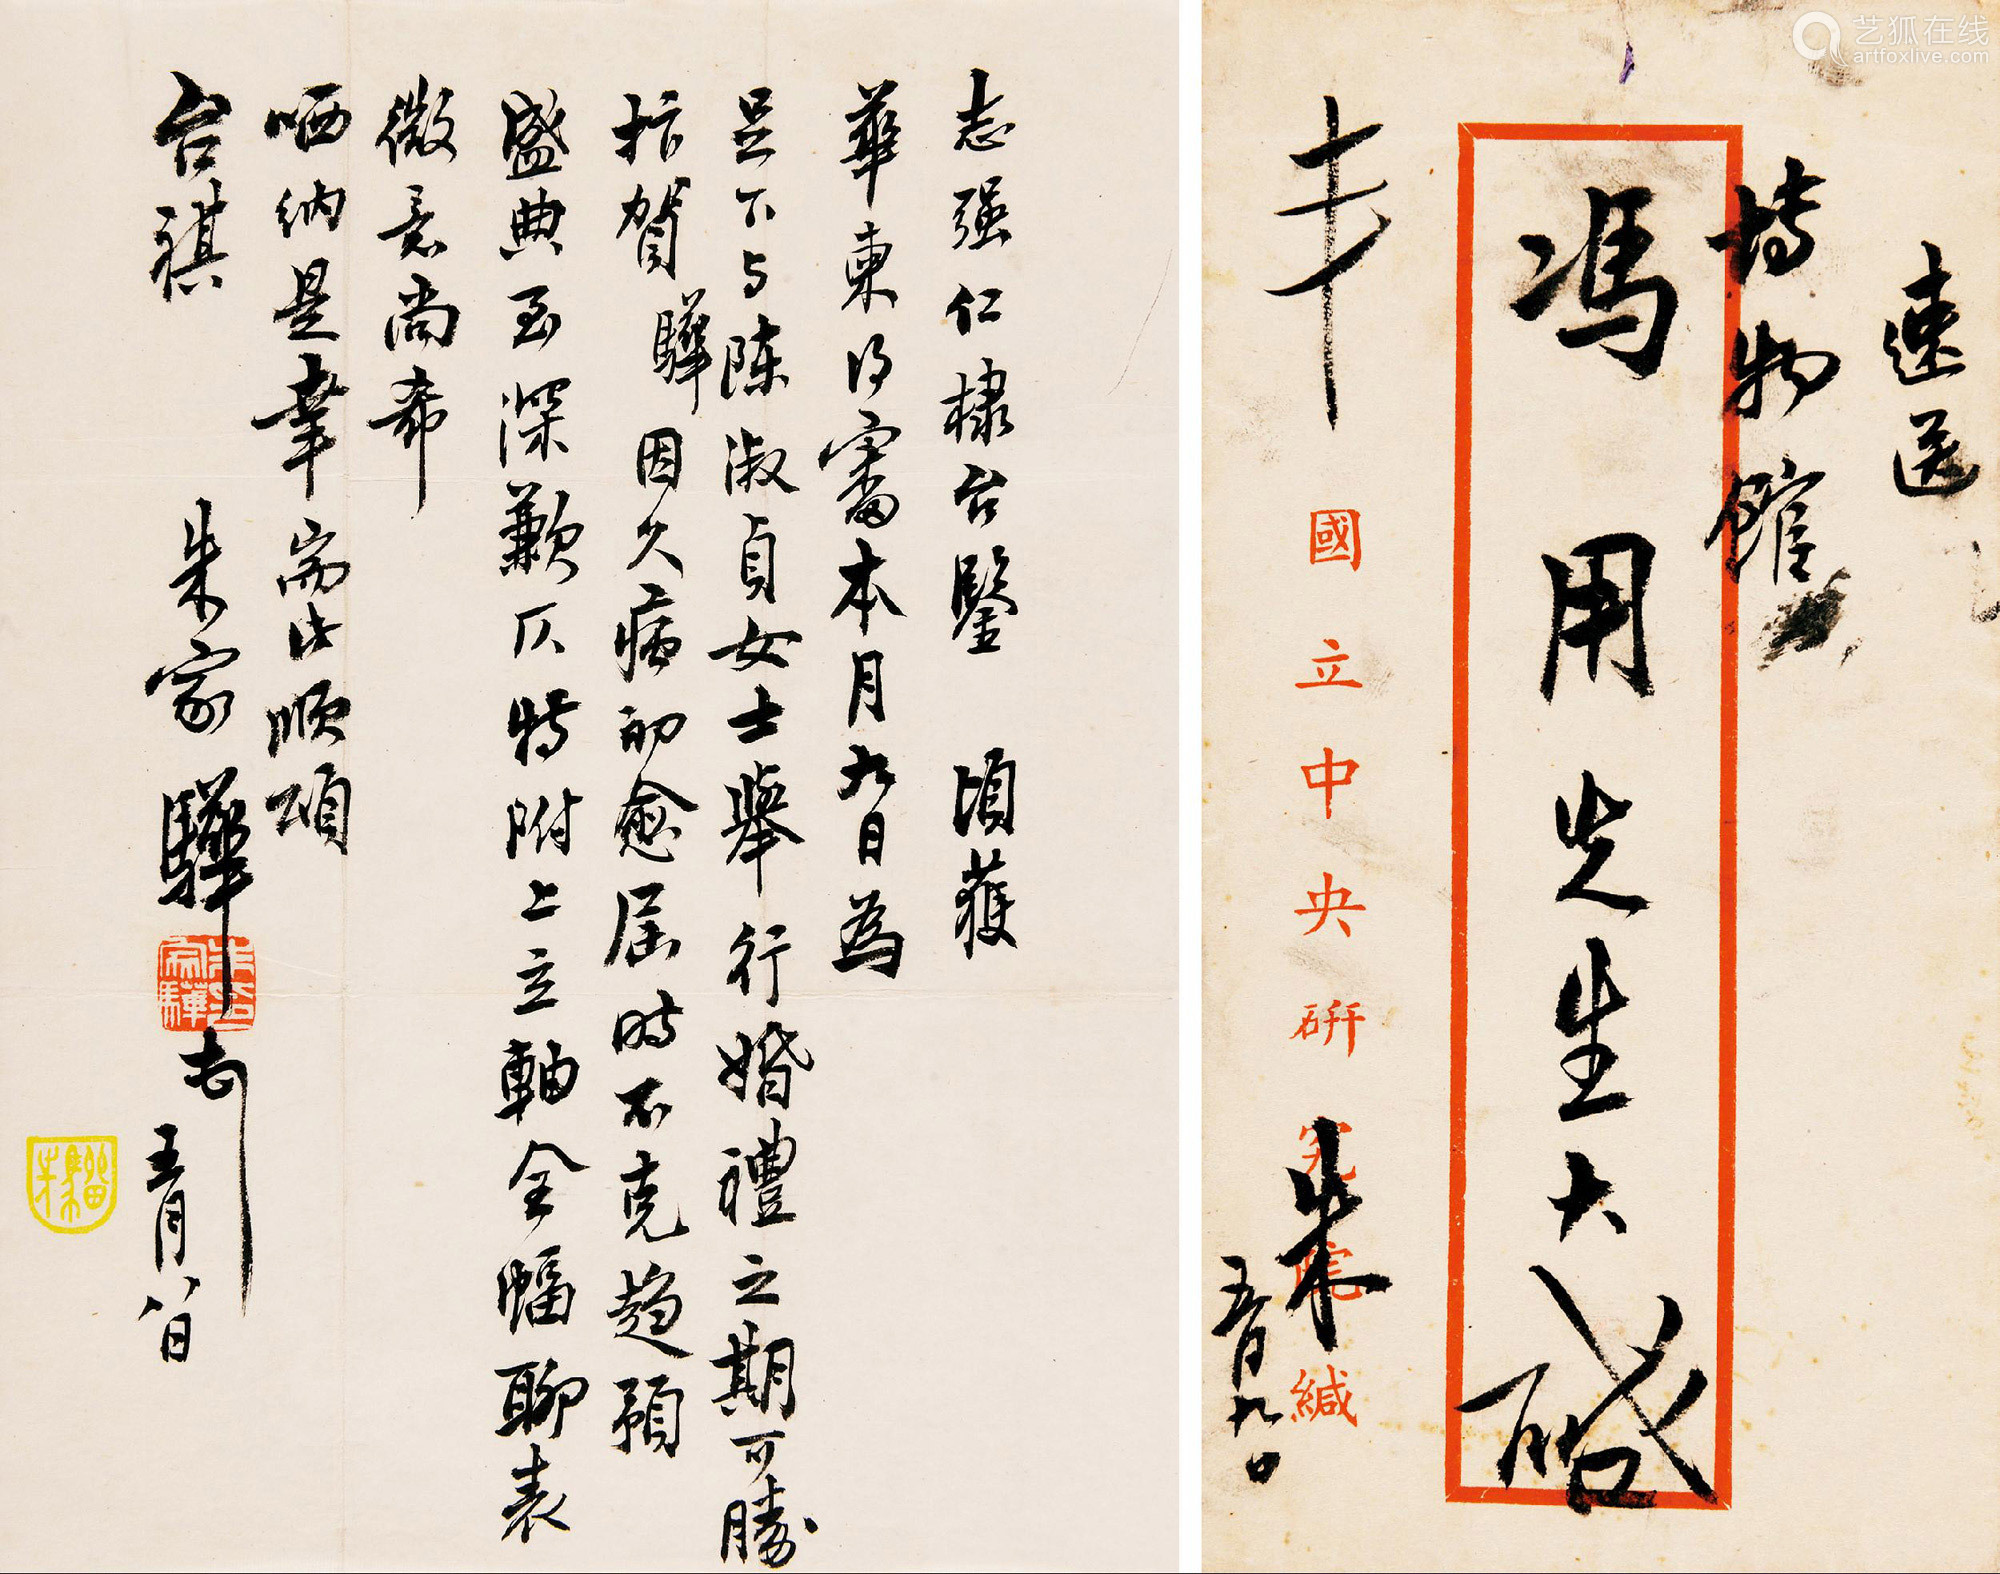 志强仁棣台鑒　頃獲
華柬得審本月九日為
足下与陳淑貞女士舉行婚禮之期可勝
抃賀驊因久病初愈屆時不克趨預
盛典至深歉仄特附上立軸全幅聊表
微意尚希
哂納是幸耑此順頌
台祺
朱家驊
五月八日
朱家驊印
速送
博物館
馮用先生大啟
國立中央研究院緘
朱
五月九日
艺狐在线
artfoxlive.com